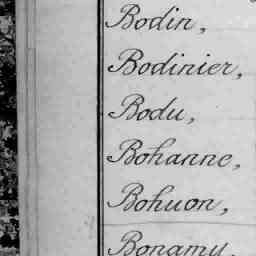 Bodin,
Bodinier,
Bodu,
Bohanne,
Bohuon,
Bonamy,